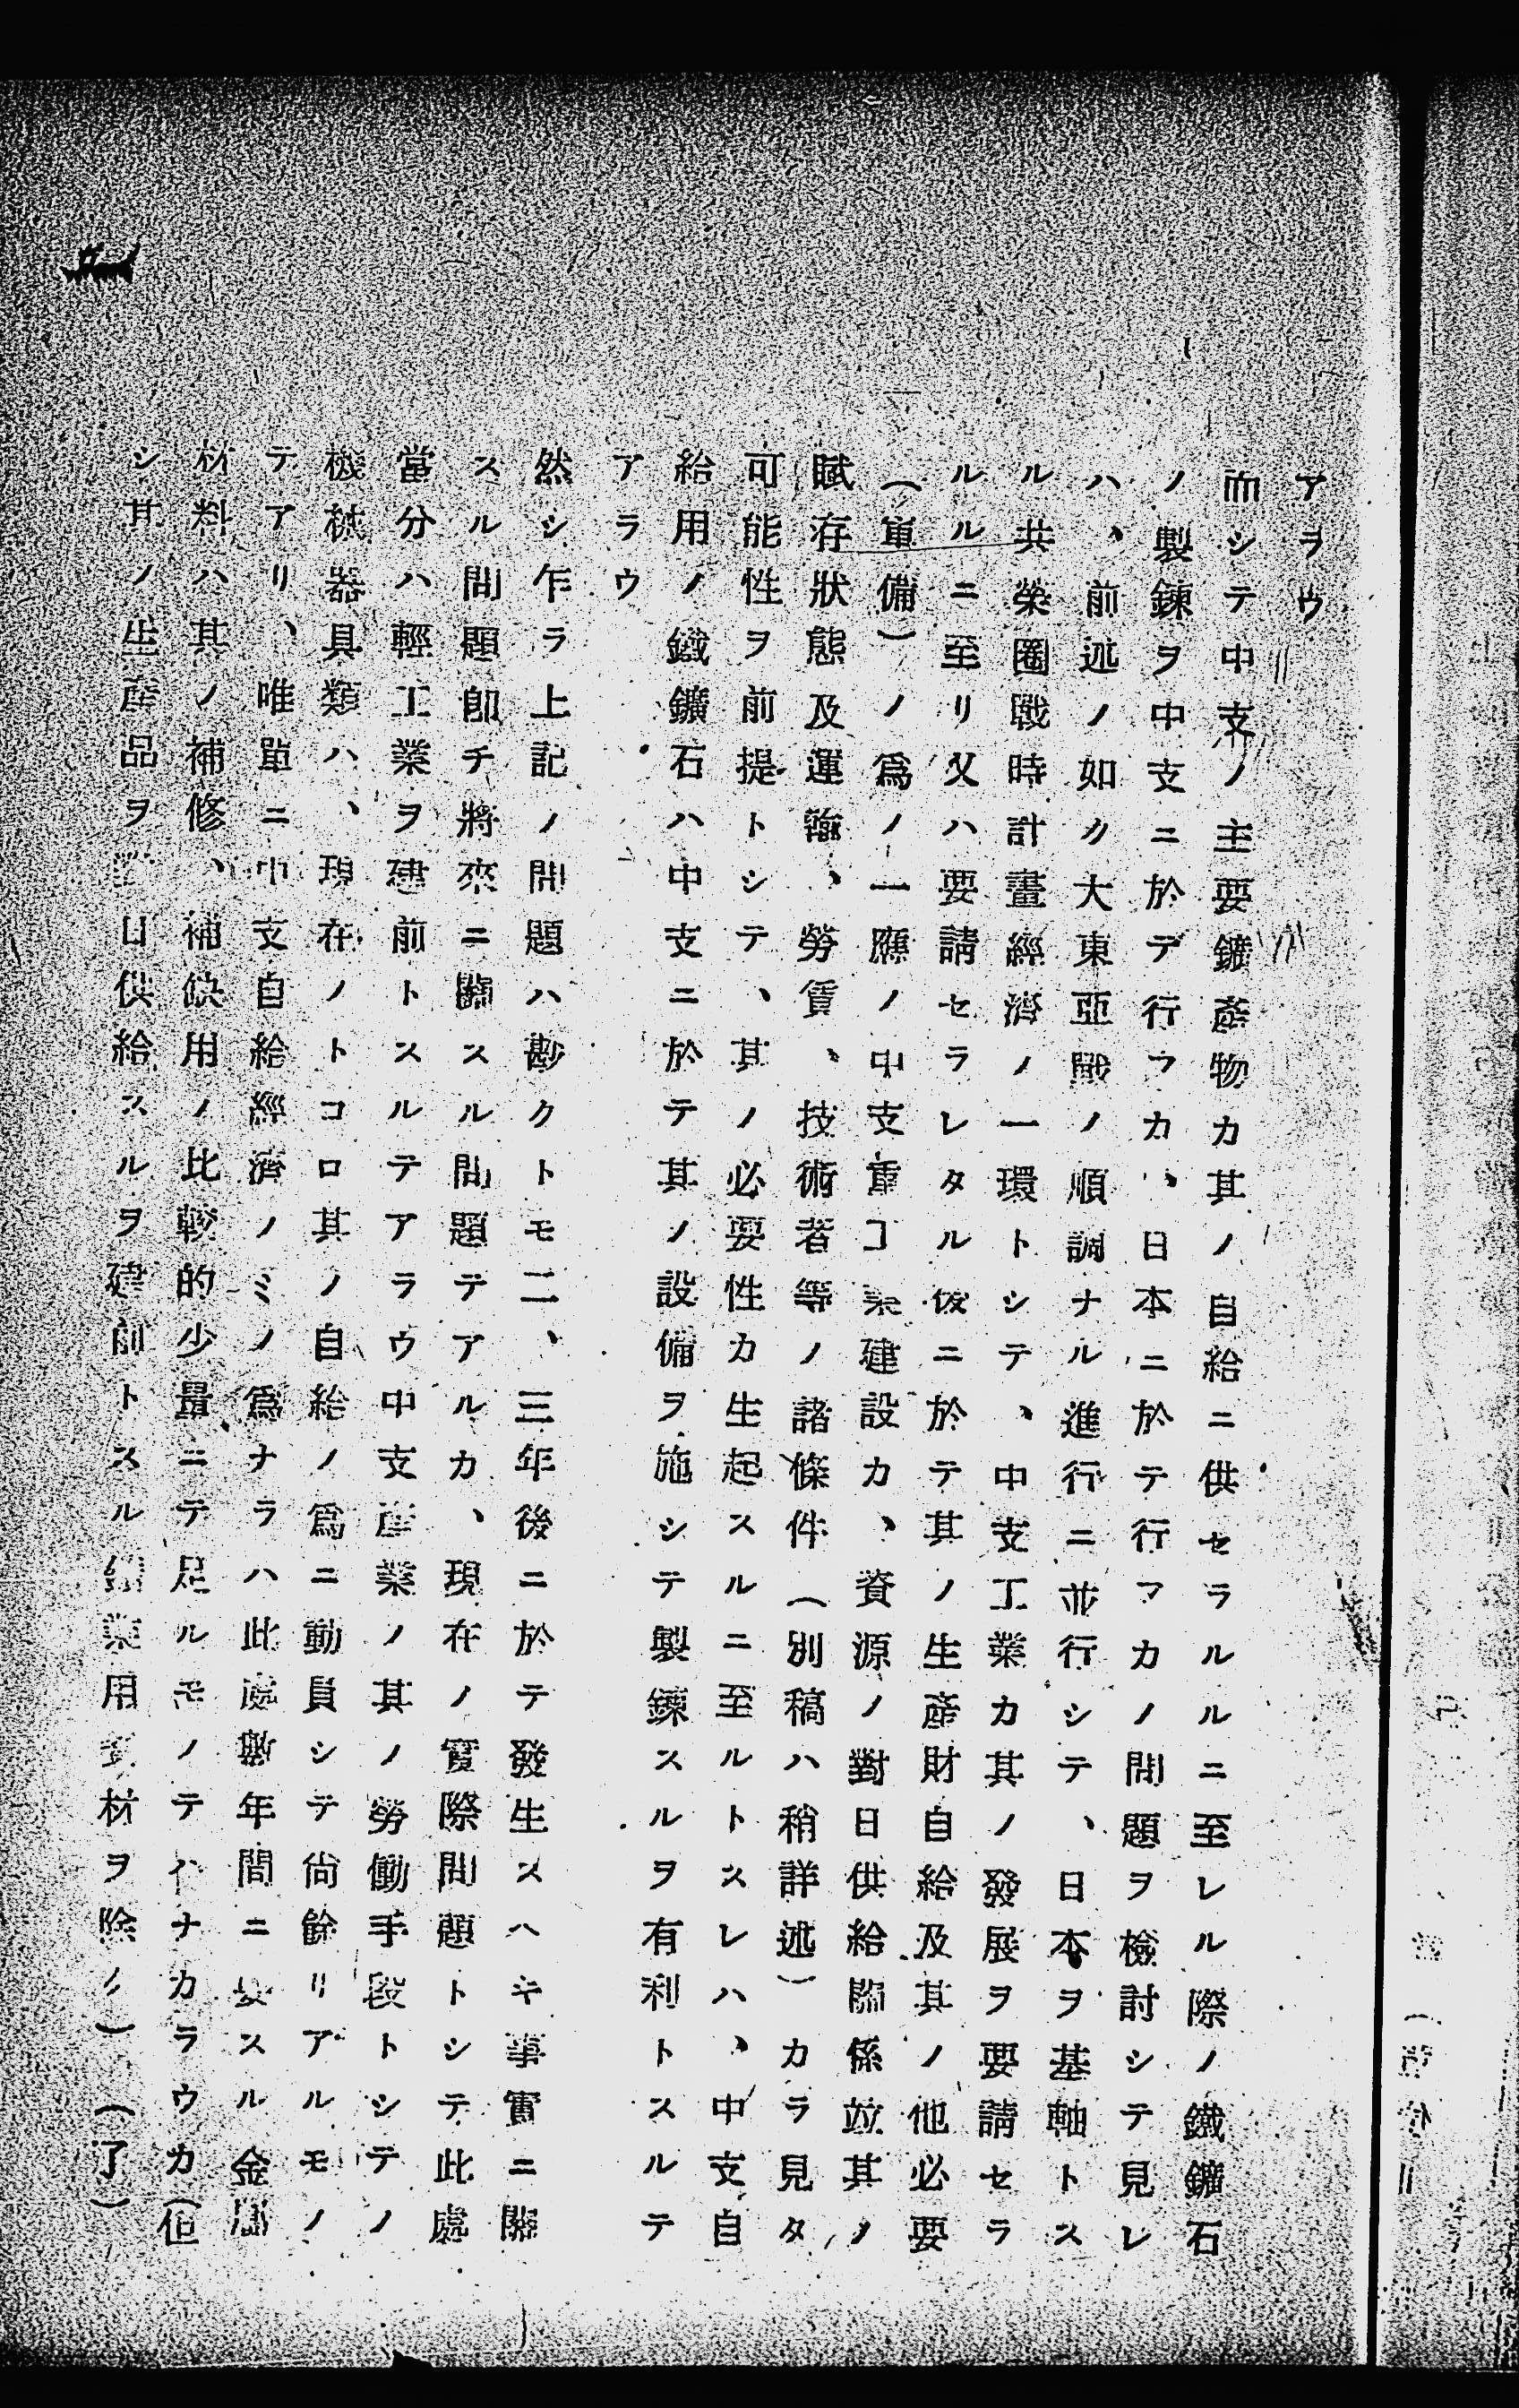 アラウ
而シテ中支ノ主要鑛產物カ其ノ自給ニ供セラルルニ至レル際ノ鐵鑛石
ノ製鍊ヲ中支ニ於テ行フカ、日本ニ於テ行フカノ問題ヲ檢討シテ見レ
ハ、前述ノ如ク大東亞戰ノ順調ナル進行ニ並行シテ、日本ヲ基軸トス
ル共榮圈戰時計畫經濟ノ一環トシテ、中支工業カ其ノ發展ヲ要請セラ
ルルニ至リ又ハ要請セラレタル後ニ於テ其ノ生產財自給及其ノ他必要
（軍備）ノ爲ノ一應ノ中支重工業建設カ、資源ノ對日供給關係竝其ノ
賦存狀態及運輸、勞賃、技術者等ノ諸條件（別稿ハ稍詳述）カラ見タ
可能性ヲ前提トシテ、其ノ必要性カ生起スルニ至ルトスレハ、中支自
給用ノ鐵鑛石ハ中支ニ於テ其ノ設備ヲ施シテ製鍊スルヲ有利トスルテ
アラウ
然シ乍ラ上記ノ問題ハ尠クトモ二、三年後ニ於テ發生スヘキ事實ニ關
スル問題卽チ將來ニ關スル問題テアルカ、現在ノ實際問題トシテ此處
當分ハ輕工業ヲ建前トスルテアラウ中支產業ノ其ノ勞働手段トシテノ
機械器具類ハ、現在ノトコロ其ノ自給ノ爲ニ動員シテ尙餘リアルモノ
テアリ、唯單ニ中支自給經濟ノミノ爲ナラハ此處數年間ニ要スル金屬
材料ハ其ノ補修、補缺用ノ比較的少量ニテ足ルモノテハナカラウカ（但
シ其ノ生產品ヲ對日供給スルヲ建前トスル業用資材ヲ除ク）（了）